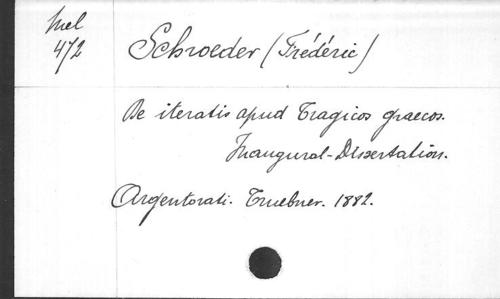 Mel
472
Schroeder (Frédéric)
De iteratis apud Tragicos graecos.
Inaugural-Dissertation.
Argentorati. Truebner. 1882.